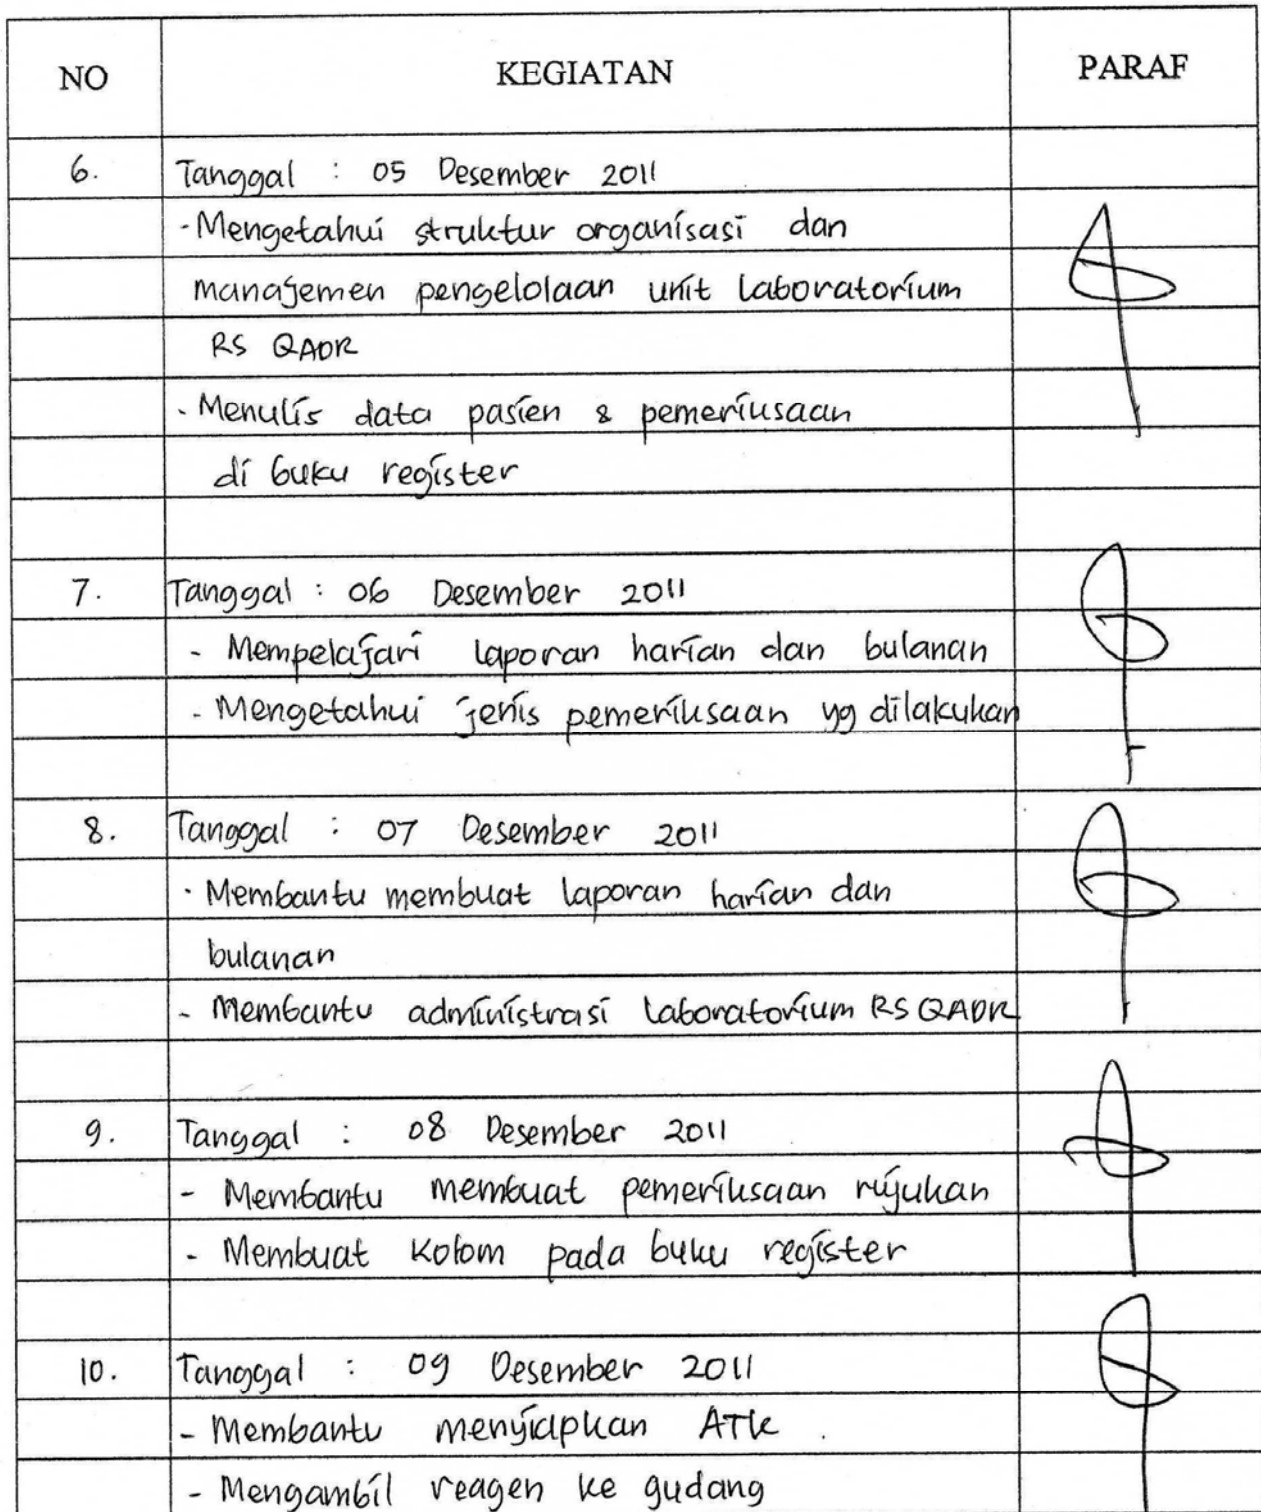 NO KEGIATAN PARAF
6. Tanggal : 05 Desember 2011
- Mengetahui struktur organisasi dan
manajemen pengelolaan unit laboratorium
RS QADR
- Menulis data pasien & pemeriksaan
di buku register
7. Tanggal : 06 Desember 2011
- Mempelajari laporan harian dan bulanan
- Mengetahui jenis pemeriksaan yg dilakukan
8. Tanggal : 07 Desember 2011
- Membantu membuat laporan harian dan
bulanan
- Membantu administrasi laboratorium RS QADR
9. Tanggal : 08 Desember 2011
- Membantu membuat pemeriksaan rujukan
- Membuat kolom pada buku register
10. Tanggal : 09 Desember 2011
- Membantu menyiapkan ATK .
- Mengambil reagen ke gudang